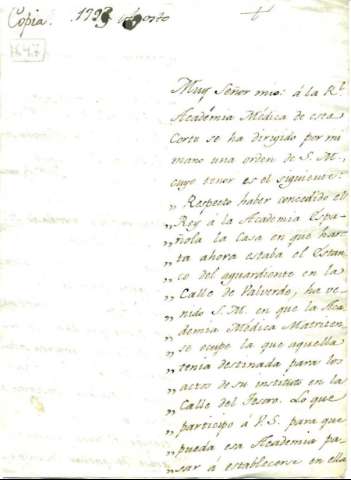 Copia. 1793 Agosto
Muy Señor mio: á la Rl.
Académia Médica de esta
Corte se ha dirigido por mi
mano una orden de S. M.,
cuyo tenor es el siguiente:
„ Respecto haber concedido el
„ Rey á la Academia Espa-
„ ñola la Casa en que has-
„ ta ahora estaba el Estan-
„ co del aguardiente en la
„ Calle de Valverde, ha ve-
„ nido S. M. en que la Aca-
„ demia Médica Matriten-
„ se ocupe la que aquella
„ tenia destinada para los
„ actos de su instituto en la
„ Calle del Tesoro. Lo que
„ participo á V. S. para que
„ pueda esa Academia pa-
„ sar á establecerse en ella